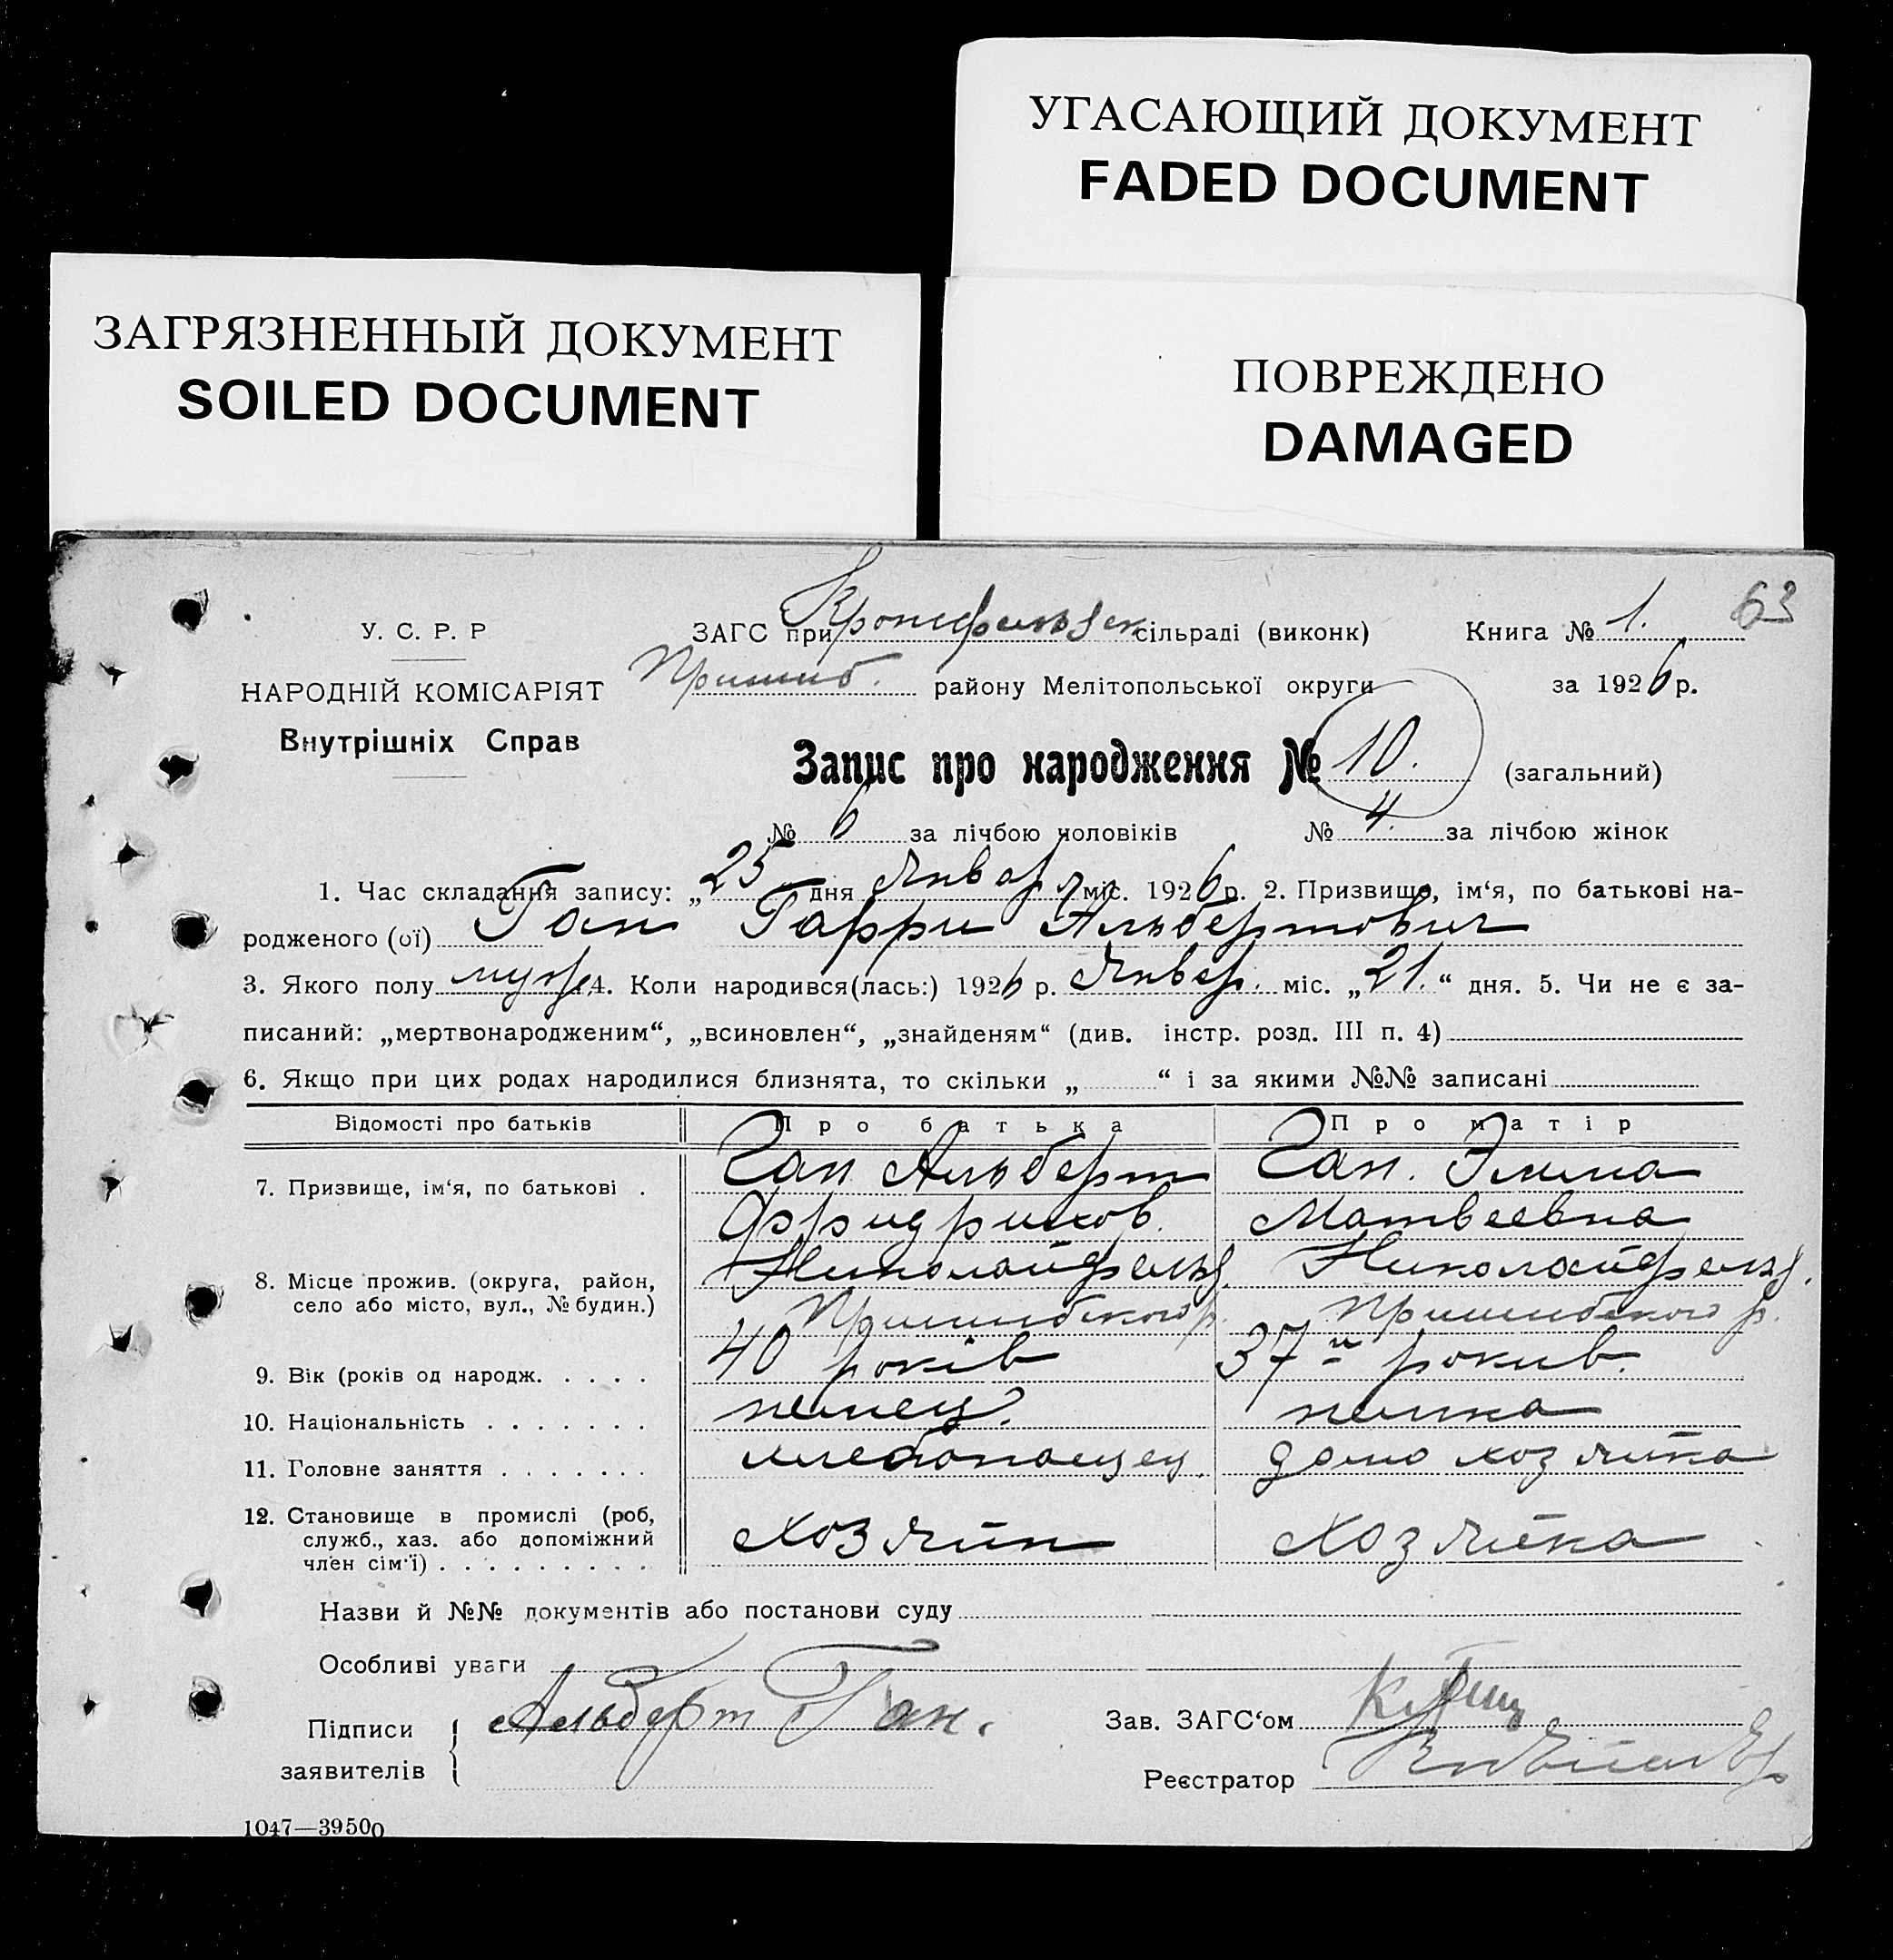 УГАСАЮЩИЙ ДОКУМЕНТ
FADED DOCUMENT
ЗАГРЯЗНЕННЫЙ ДОКУМЕНТ
SOILED DOCUMENT
ПОВРЕЖДЕНО
DAMAGED
63
У. С. Р. Р
НАРОДНІЙ КОМІСАРІЯТ
Внутрішніх Справ
ЗАГС при Кронсфельдск сільраді (виконк) Книга № 1.
Пришиб. району Мелітопольської округи за 1926 р.
Запис про народження № 10. (загальний)
№ 6 за лічбою чоловіків № 4. за лічбою жінок
1. Час складання запису: „25 дня Январ міс. 1926 р. 2. Призвище, ім‘я, по батькові на-
родженого (ої) Ган Гарри Альбертович
3. Якого полу муж. 4. Коли народився(лась:) 1926 р. Январ. міс. „21.“ дня. 5. Чи не є за-
писаний: „мертвонародженим“, „всиновлен“, „знайденям“ (див. інстр. розд. III п. 4)
6. Якщо при цих родах народилися близнята, то скільки „ “ і за якими №№ записані
Відомості про батьків Про батька Про матір
7. Призвище, ім‘я, по батькові . Ган Альберт Ган. Эмма
Фридрихов. Матвеевна
8. Місце прожив. (округа, район, Николайфельд. Николайфельд.
село або місто, вул., № будин.) Пришибского р. Пришибского р.
9. Вік (років од народж. . . . . 40 років 37 рокив.
10. Національність . . . . . . . немец. немка
11. Головне заняття . . . . . . . хлебопашец. домохозяйка
12. Становище в промислі (роб, служб., хаз. або допоміжний член сім‘ї) . . . . . . . . . Хозяин Хозяйка
Назви й №№ документів або постанови суду
Особливі уваги
Підписи заявителів Альберт Ган.
Зав. ЗАГС‘ом
Реєстратор
1047—39500